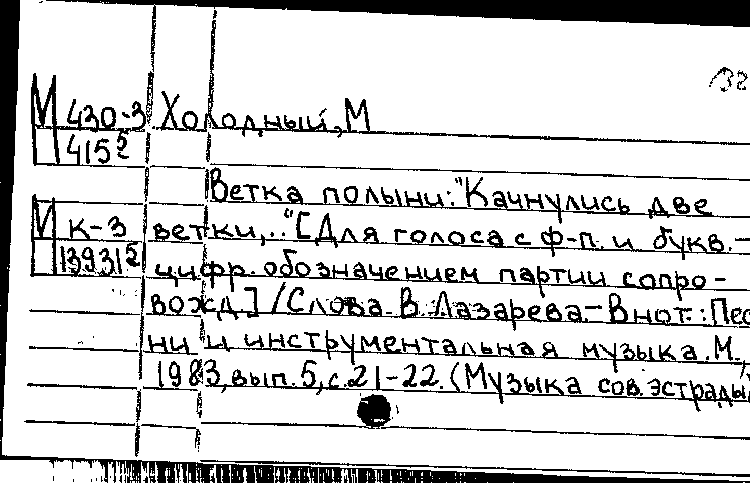 132
М 430-3 Холодный, М
4152
Ветка полыни: "Качнулись две
М К-3 ветки,.." [Для голоса с ф-п. и букв.-
139312 цифр. обозначением партии сопро-
вожд.] /Слова В. Лазарева.- В нот.: Пес
ни и инструментальная музыка. М.,
1983, вып. 5, с. 21-22. (Музыка сов. эстрады,